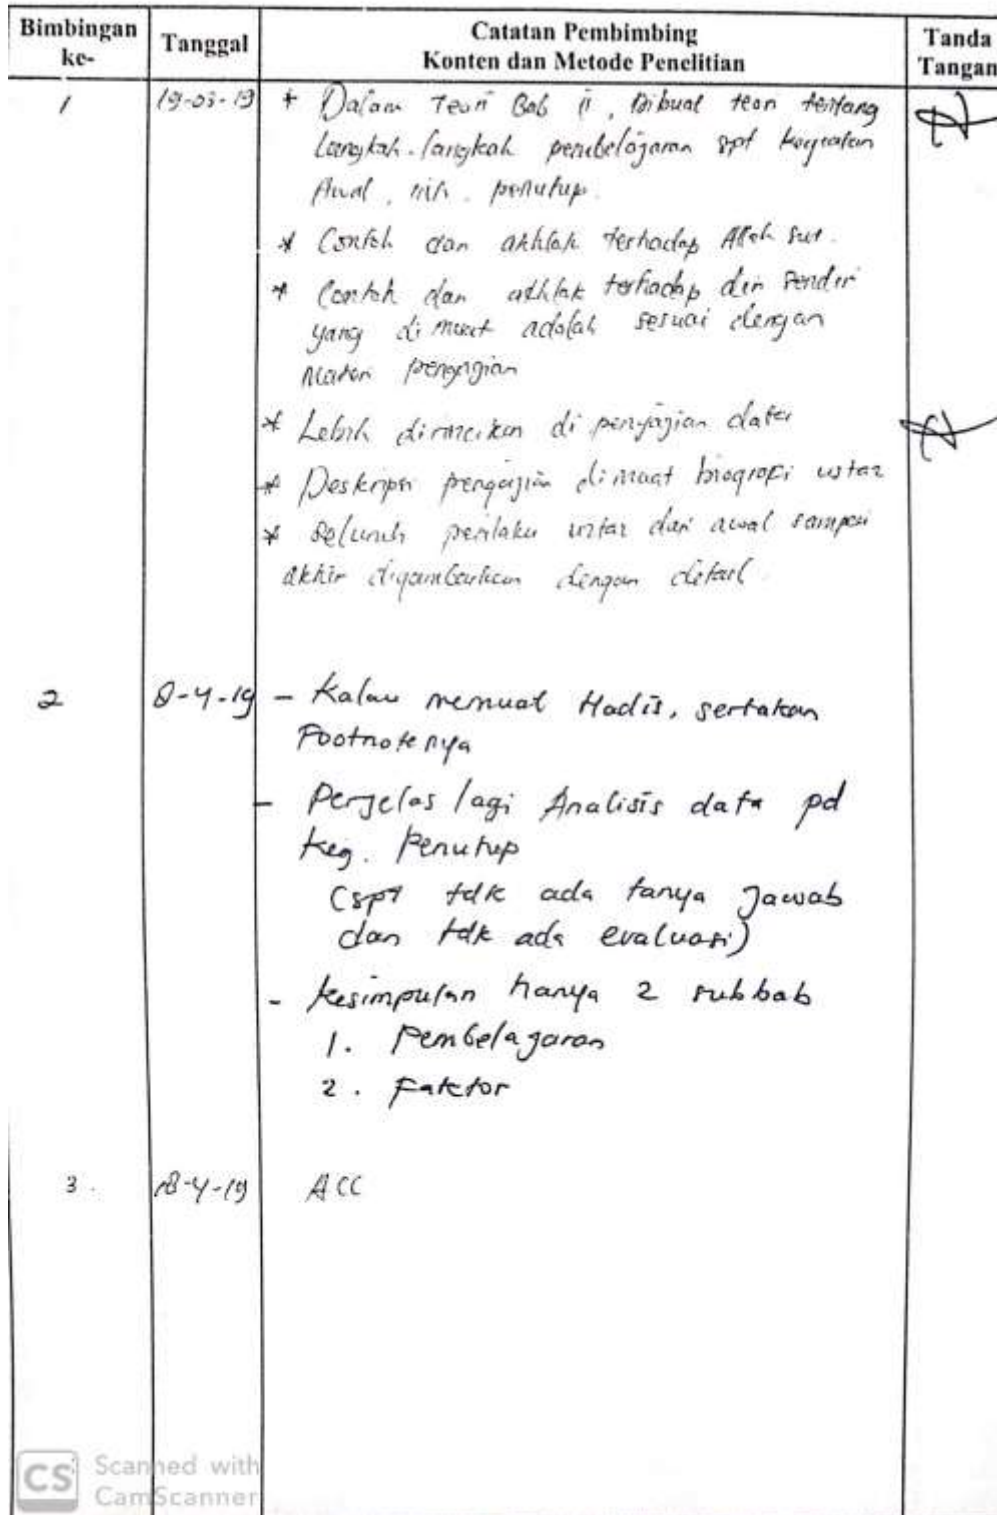 Bimbingan ke- Tanggal Catatan Pembimbing Konten dan Metode Penelitian Tanda Tangan
1 19-03-19 * Dalam Teori Bab II, Dibuat teori tentang
Langkah-langkah pembelajaran spt kegiatan
Awal, inti, penutup.
* Contoh dan akhlak terhadap Allah swt.
* Contoh dan akhlak terhadap diri sendiri
yang di muat adalah sesuai dengan
Materi pengajian
* Lebih dirincikan di penyajian data
* Deskripsi pengajian dimuat biografi ustaz
* Seluruh perilaku ustaz dari awal sampai
akhir digambarkan dengan detail.
2 8-4-19 - Kalau memuat Hadis, sertakan
Footnotenya
- Perjelas lagi Analisis data pd
Keg. Penutup
(spt tdk ada tanya Jawab
dan tdk ada evaluasi)
- Kesimpulan hanya 2 subbab
1. Pembelajaran
2. Faktor
3. 18-4-19 ACC
CS Scanned with
CamScanner